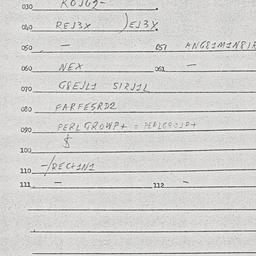 030 KOJ69-
040 REJ3X )EJ3X.
050 - 051 ANG81M1N81A
060 NEX 061 -
070 G8EJL1 S12J1L
080 FARFE5RD2
090 PERLGROWP+ = PERLGROJP+
$
100
110 -/REC+1N1
111 - 112 -